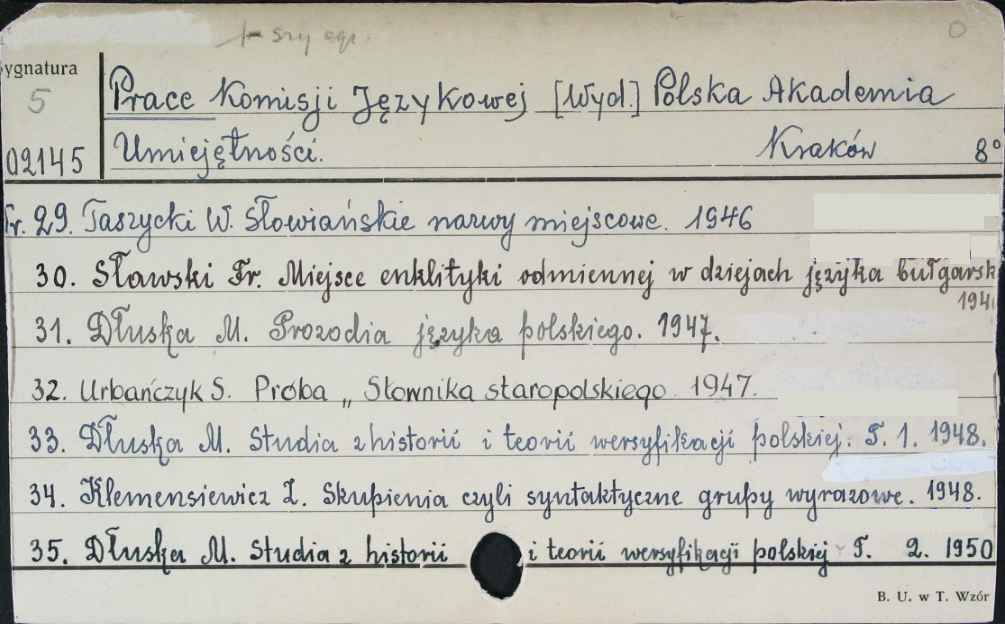 ygnatura
5
Prace Komisji Językowej [Wyd.] Polska Akademia
02145 Umiejętności. Kraków 8°
Nr. 29. Taszycki W. Słowiańskie nazwy miejscowe. 1946
30. Sławski Fr. Miejsce enklityki odmiennej w dziejach języka bułgarsk
194
31. Dłuska M. Prozodia języka polskiego. 1947.
32. Urbańczyk S. Próba „Słownika staropolskiego. 1947.
33. Dłuska M. Studia z historii i teorii wersyfikacji polskiej. T. 1. 1948.
34. Klemensiewicz Z. Skupienia czyli syntaktyczne grupy wyrazowe. 1948.
35. Dłuska M. Studia z historii i teorii wersyfikacji polskiej T. 2. 1950
B. U. w T. Wzór